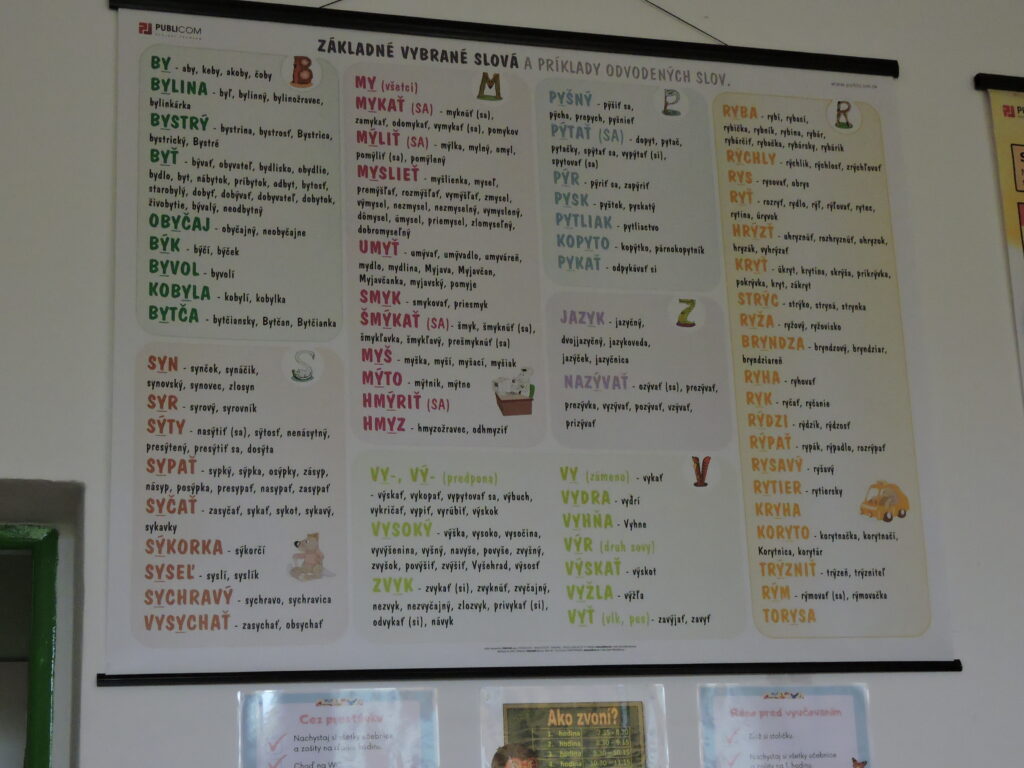 PUBLICOM
ZÁKLADNÉ VYBRANÉ SLOVÁ A PRÍKLADY ODVODENÝCH SLOV.
B
BY - aby, keby, akoby, čoby
BYLINA - byľ, bylinný, bylinožravec,
bylinkárka
BYSTRÝ - bystrina, bystrosť, Bystrica,
bystrický, Bystré
BYŤ - bývať, obyvateľ, bydlisko, obydlie,
bydlo, byt, nábytok, príbytok, odbyt, bytosť,
starobylý, dobyť, dobývať, dobyvateľ, dobytok,
živobytie, bývalý, neodbytný
OBYČAJ - obyčajný, neobyčajne
BÝK - býčí, býček
BYVOL - byvolí
KOBYLA - kobylí, kobylka
BYTČA - bytčiansky, Bytčan, Bytčianka
S
SYN - synček, synáčik,
synovský, synovec, zlosyn
SYR - syrový, syrovník
SÝTY - nasýtiť (sa), sýtosť, nenásytný,
presýtený, presýtiť sa, dosýta
SYPAŤ - sypký, sýpka, osýpky, zásyp,
násyp, posýpka, presypať, nasypať, zasypať
SYČAŤ - zasyčať, sykať, sykot, sykavý,
sykavky
SÝKORKA - sýkorčí
SYSEĽ - syslí, syslík
SYCHRAVÝ - sychravo, sychravica
VYSYCHAŤ - zasychať, obsychať
M
MY (všetci)
MYKAŤ (SA) - myknúť (sa),
zamykať, odomykať, vymykať (sa), pomykov
MÝLIŤ (SA) - mýlka, mylný, omyl,
pomýliť (sa), pomýlený
MYSLIEŤ - myšlienka, myseľ,
premýšľať, rozmýšľať, vymýšľať, zmysel,
výmysel, nezmysel, nezmyselný, vymyslený,
dômysel, úmysel, priemysel, zlomyseľný,
dobromyseľný
UMYŤ - umývať, umývadlo, umyváreň,
mydlo, mydlina, Myjava, Myjavčan,
Myjavčanka, myjavský, pomyje
SMYK - smykovať, priesmyk
ŠMÝKAŤ (SA) - šmyk, šmyknúť (sa),
šmykľavka, šmykľavý, prešmyknúť (sa)
MYŠ - myška, myší, myšací, myšiak
MÝTO - mýtnik, mýtne
HMÝRIŤ (SA)
HMYZ - hmyzožravec, odhmyziť
P
PYŠNÝ - pýšiť sa,
pýcha, prepych, pyšnieť
PÝTAŤ (SA) - dopyt, pytač,
pytačky, spýtať sa, vypýtať (si),
spytovať (sa)
PÝR - pýriť sa, zapýriť
PYSK - pyštek, pyskatý
PYTLIAK - pytliactvo
KOPYTO - kopýtko, párnokopytník
PYKAŤ - odpykávať si
Z
JAZYK - jazyčný,
dvojjazyčný, jazykoveda,
jazýček, jazyčnica
NAZÝVAŤ - ozývať (sa), prezývať,
prezývka, vyzývať, pozývať, vzývať,
prizývať
VY-, VÝ- (predpona)
- výskať, vykopať, vypytovať sa, výbuch,
vykričať, vypiť, vyrúbiť, výskok
VYSOKÝ - výška, vysoko, vysočina,
vyvýšenina, vyšný, navyše, povyše, zvyšný,
zvyšok, povýšiť, zvýšiť, Vyšehrad, výsosť
ZVYK - zvykať (si), zvyknúť, zvyčajný,
nezvyk, nezvyčajný, zlozvyk, privykať (si),
odvykať (si), návyk
V
VY (zámeno) - vykať
VYDRA - vydrí
VYHŇA - Vyhne
VÝR (druh sovy)
VÝSKAŤ - výskot
VYŽLA - výžľa
VYŤ (vlk, pes) - zavýjať, zavyť
R
RYBA - rybí, rybací,
rybička, rybník, rybina, rybár,
rybárčiť, rybačka, rybársky, rybárik
RÝCHLY - rýchlik, rýchlosť, zrýchľovať
RYS - rysovať, obrys
RYŤ - rozryť, rydlo, rýľ, rýľovať, rytec,
rytina, úryvok
HRÝZŤ - uhryznúť, rozhryznúť, ohryzok,
hryzák, vyhrýzať
KRYŤ - úkryt, krytina, skrýša, prikrývka,
pokrývka, kryt, zákryt
STRÝC - strýko, stryná, strynka
RYŽA - ryžový, ryžovisko
BRYNDZA - bryndzový, bryndziar,
bryndziareň
RYHA - ryhovať
RYK - ryčať, ryčanie
RÝDZI - rýdzik, rýdzosť
RÝPAŤ - rypák, rýpadlo, rozrýpať
RYSAVÝ - ryšavý
RYTIER - rytiersky
KRYHA
KORYTO - korytnačka, korytnačí,
Korytnica, korytár
TRÝZNIŤ - trýzeň, trýzniteľ
RÝM - rýmovať (sa), rýmovačka
TORYSA
Cez prestávku
Nachystaj si všetky učebnice
a zošity na ďalšiu hodinu.
Choď na WC
Ako zvoní?
1. hodina 7.35 - 8.20
2. hodina
3. hodina
4. hodina
Ráno pred vyučovaním
Zlož si stoličku.
Nachystaj si všetky učebnice
a zošity na 1. hodinu.